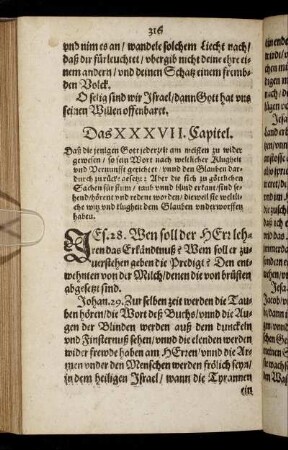 316
vnd nim es an/ wandele solchem Liecht nach/
daß dir fürleuchtet/ vbergib nicht deine ehre eine
einem andern/ vnd deinen Schatz einem fremb-
den Volck.
O selig sind wir Jsrael/ dann Gott hat vns
seinen Willen offenbaret.
Das XXXVII. Capitel.
Daß die jenigen Gott jederzeit am meisten zu wider
gewesen/ so sein Wort nach weltlicher Klugheit
vnd Vernunfft gerichtet/ vnnd den Glauben dar-
durch zurück gesetzt: Aber die sich in göttlichen
Sachen für stum/ taub vnnd blind erkant/ sind se-
hend/ hörent vnd redent worden/ dieweil sie weltli-
che witz vnd klugheit dem Glauben vnderworffen
haben.
JES. 28. Wen soll der HErr leh-
ren das Erkändtnuß? Wem soll er zu
verstehen geben die Predigt? Den ent-
wehnten von der Milch/ denen die von brüsten
abgesetzt sind.
Johan. 29. Zur selben zeit werden die Tau-
ben hören/ die Wort deß Buchs/ vnnd die Au-
gen der Blinden werden auß dem dunckeln
vnd Finsternuß sehen/ vnnd die elenden werden
wider frewde haben am HErren/ vnnd die Ar-
men vnder den Menschen werden frölich seyn/
in dem heiligen Jsrael/ wann die Tyrannen
ein